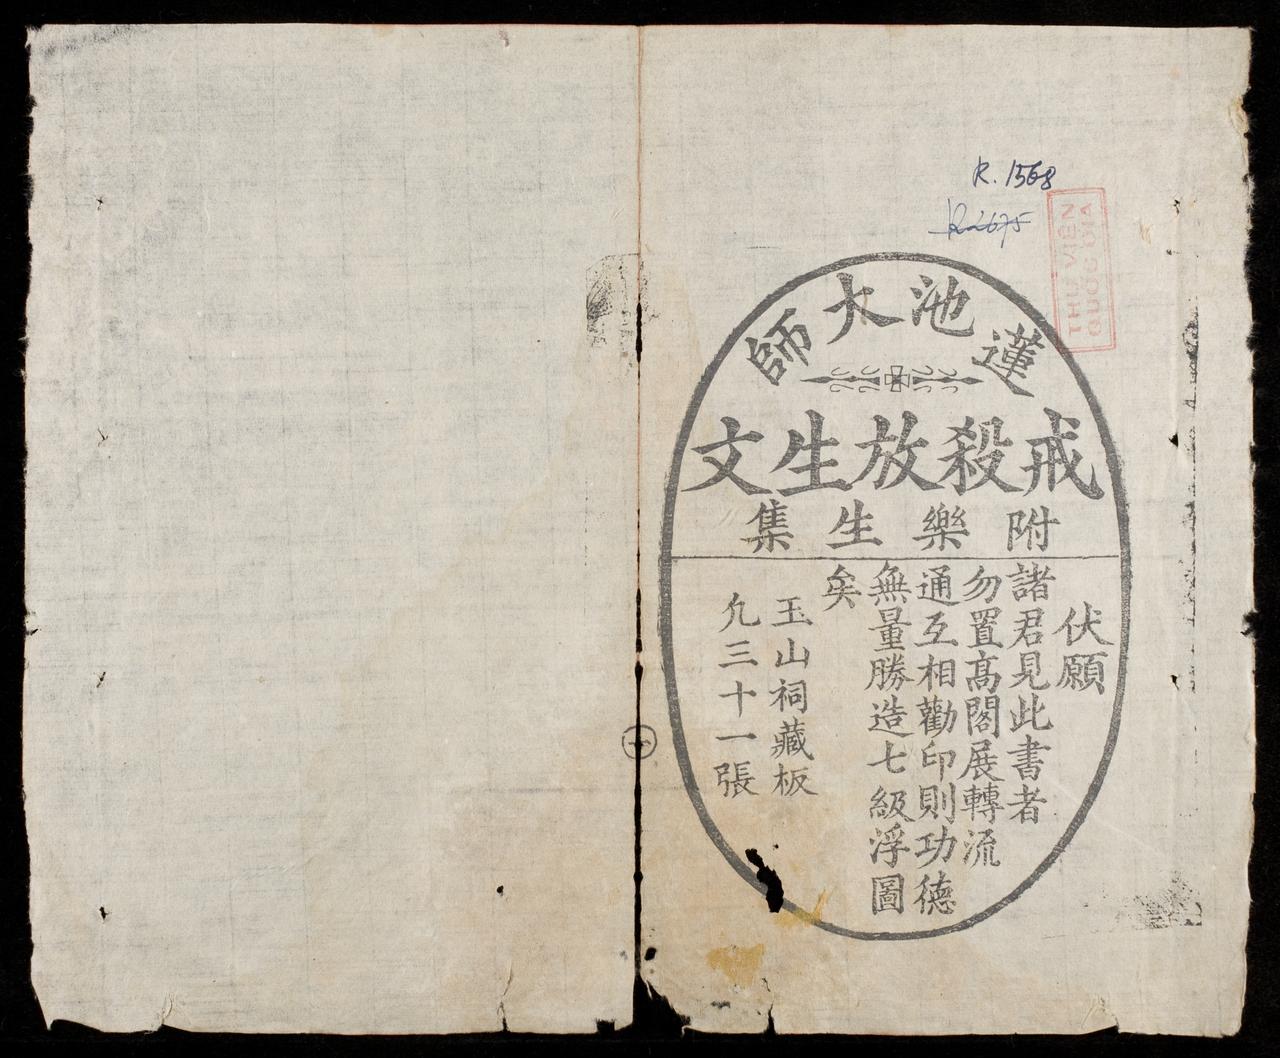 R. 1568
R 2675
THƯ VIỆN
QUỐC GIA
蓮池大師
戒殺放生文
附樂生集
伏願
諸君見此書者
勿置高閣展轉流
通互相勸印則功德
無量勝造七級浮圖
矣
玉山祠藏板
凣三十一張